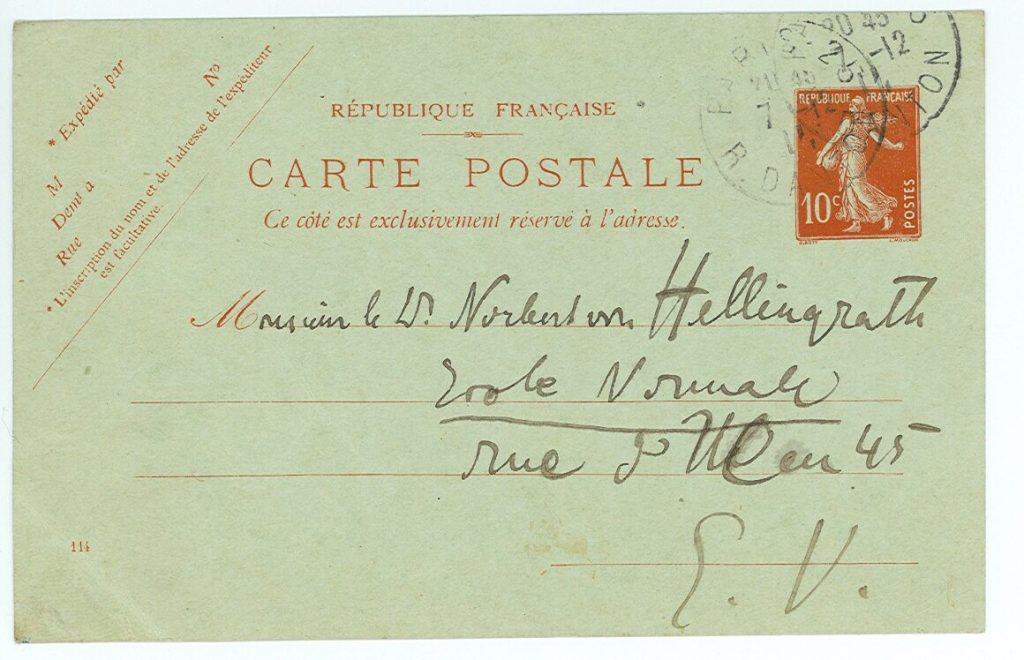 * Expédié par
M
Demt a
Rue
No
* L'inscription du nom et de l'adresse de l'expéditeur
est facultative.
RÉPUBLIQUE FRANÇAISE
CARTE POSTALE
Ce côté est exclusivement réservé à l'adresse.
REPUBLIQUE FRANÇAISE
10c
POSTES
20 45
-12
R. DANTON
Monsieur le Dr. Norbert von Hellingrath
Ecole Normale
rue d'Ulm 45
E. V.
114